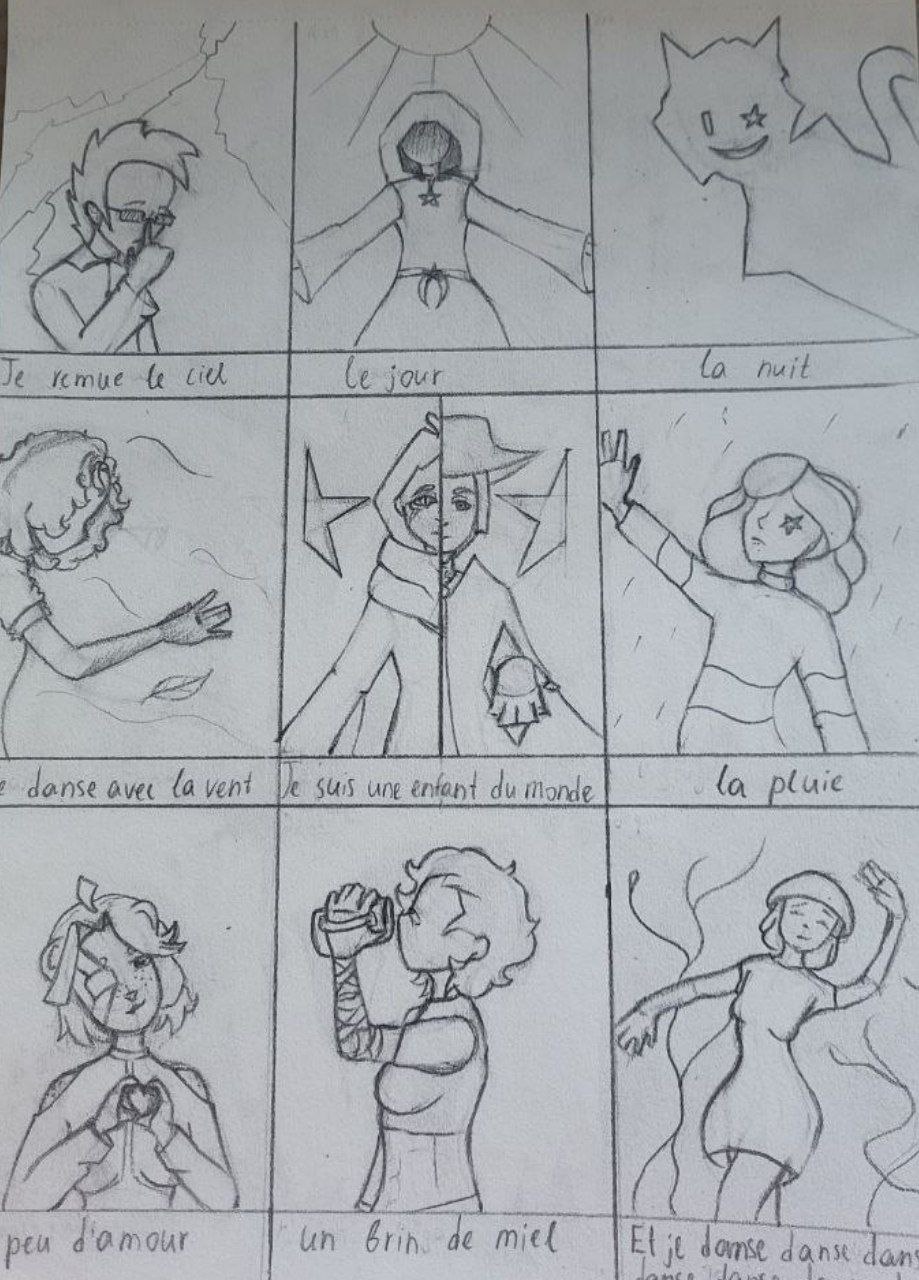 Je remue le ciel
le jour
la nuit
e danse avec la vent
Je suis une enfant du monde
la pluie
peu d'amour
un brin de miel
Et je danse danse dans
danse danse